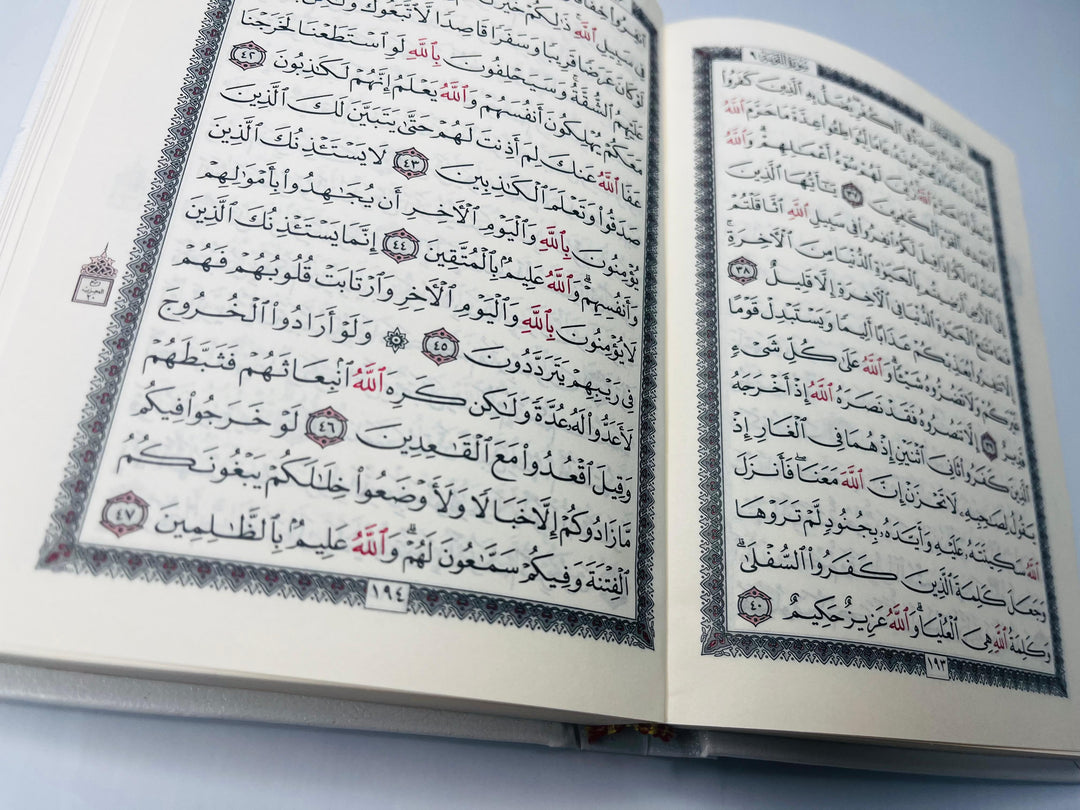 سُورَةُ التَّوْبَةِ ٩
الْكُفْرِ يُضَلُّ بِهِ الَّذِينَ كَفَرُوا
عَامًا لِّيُوَاطِئُوا عِدَّةَ مَا حَرَّمَ اللَّهُ
اللَّهُ زُيِّنَ لَهُمْ سُوءُ أَعْمَالِهِمْ وَاللَّهُ
الْقَوْمَ الْكَافِرِينَ ٣٧ يَا أَيُّهَا الَّذِينَ
لَكُمْ إِذَا قِيلَ لَكُمُ انفِرُوا فِي سَبِيلِ اللَّهِ اثَّاقَلْتُمْ
إِلَى الْأَرْضِ أَرَضِيتُم بِالْحَيَاةِ الدُّنْيَا مِنَ الْآخِرَةِ
فَمَا مَتَاعُ الْحَيَاةِ الدُّنْيَا فِي الْآخِرَةِ إِلَّا قَلِيلٌ ٣٨
إِلَّا تَنفِرُوا يُعَذِّبْكُمْ عَذَابًا أَلِيمًا وَيَسْتَبْدِلْ قَوْمًا
غَيْرَكُمْ وَلَا تَضُرُّوهُ شَيْئًا وَاللَّهُ عَلَىٰ كُلِّ شَيْءٍ
قَدِيرٌ ٣٩ إِلَّا تَنصُرُوهُ فَقَدْ نَصَرَهُ اللَّهُ إِذْ أَخْرَجَهُ
الَّذِينَ كَفَرُوا ثَانِيَ اثْنَيْنِ إِذْ هُمَا فِي الْغَارِ إِذْ
يَقُولُ لِصَاحِبِهِ لَا تَحْزَنْ إِنَّ اللَّهَ مَعَنَا فَأَنزَلَ
اللَّهُ سَكِينَتَهُ عَلَيْهِ وَأَيَّدَهُ بِجُنُودٍ لَّمْ تَرَوْهَا
وَجَعَلَ كَلِمَةَ الَّذِينَ كَفَرُوا السُّفْلَىٰ
وَكَلِمَةُ اللَّهِ هِيَ الْعُلْيَا وَاللَّهُ عَزِيزٌ حَكِيمٌ ٤٠
١٩٣
فِي سَبِيلِ اللَّهِ ذَٰلِكُمْ خَيْرٌ
لَوْ كَانَ عَرَضًا قَرِيبًا وَسَفَرًا قَاصِدًا لَّاتَّبَعُوكَ وَلَٰكِن
عَلَيْهِمُ الشُّقَّةُ وَسَيَحْلِفُونَ بِاللَّهِ لَوِ اسْتَطَعْنَا لَخَرَجْنَا
مَعَكُمْ يُهْلِكُونَ أَنفُسَهُمْ وَاللَّهُ يَعْلَمُ إِنَّهُمْ لَكَاذِبُونَ ٤٢
عَفَا اللَّهُ عَنكَ لِمَ أَذِنتَ لَهُمْ حَتَّىٰ يَتَبَيَّنَ لَكَ الَّذِينَ
صَدَقُوا وَتَعْلَمَ الْكَاذِبِينَ ٤٣ لَا يَسْتَأْذِنُكَ الَّذِينَ
يُؤْمِنُونَ بِاللَّهِ وَالْيَوْمِ الْآخِرِ أَن يُجَاهِدُوا بِأَمْوَالِهِمْ
وَأَنفُسِهِمْ وَاللَّهُ عَلِيمٌ بِالْمُتَّقِينَ ٤٤ إِنَّمَا يَسْتَأْذِنُكَ الَّذِينَ
لَا يُؤْمِنُونَ بِاللَّهِ وَالْيَوْمِ الْآخِرِ وَارْتَابَتْ قُلُوبُهُمْ فَهُمْ
فِي رَيْبِهِمْ يَتَرَدَّدُونَ ٤٥ ۞ وَلَوْ أَرَادُوا الْخُرُوجَ
لَأَعَدُّوا لَهُ عُدَّةً وَلَٰكِن كَرِهَ اللَّهُ انبِعَاثَهُمْ فَثَبَّطَهُمْ
وَقِيلَ اقْعُدُوا مَعَ الْقَاعِدِينَ ٤٦ لَوْ خَرَجُوا فِيكُم
مَّا زَادُوكُمْ إِلَّا خَبَالًا وَلَأَوْضَعُوا خِلَالَكُمْ يَبْغُونَكُمُ
الْفِتْنَةَ وَفِيكُمْ سَمَّاعُونَ لَهُمْ وَاللَّهُ عَلِيمٌ بِالظَّالِمِينَ ٤٧
١٩٤